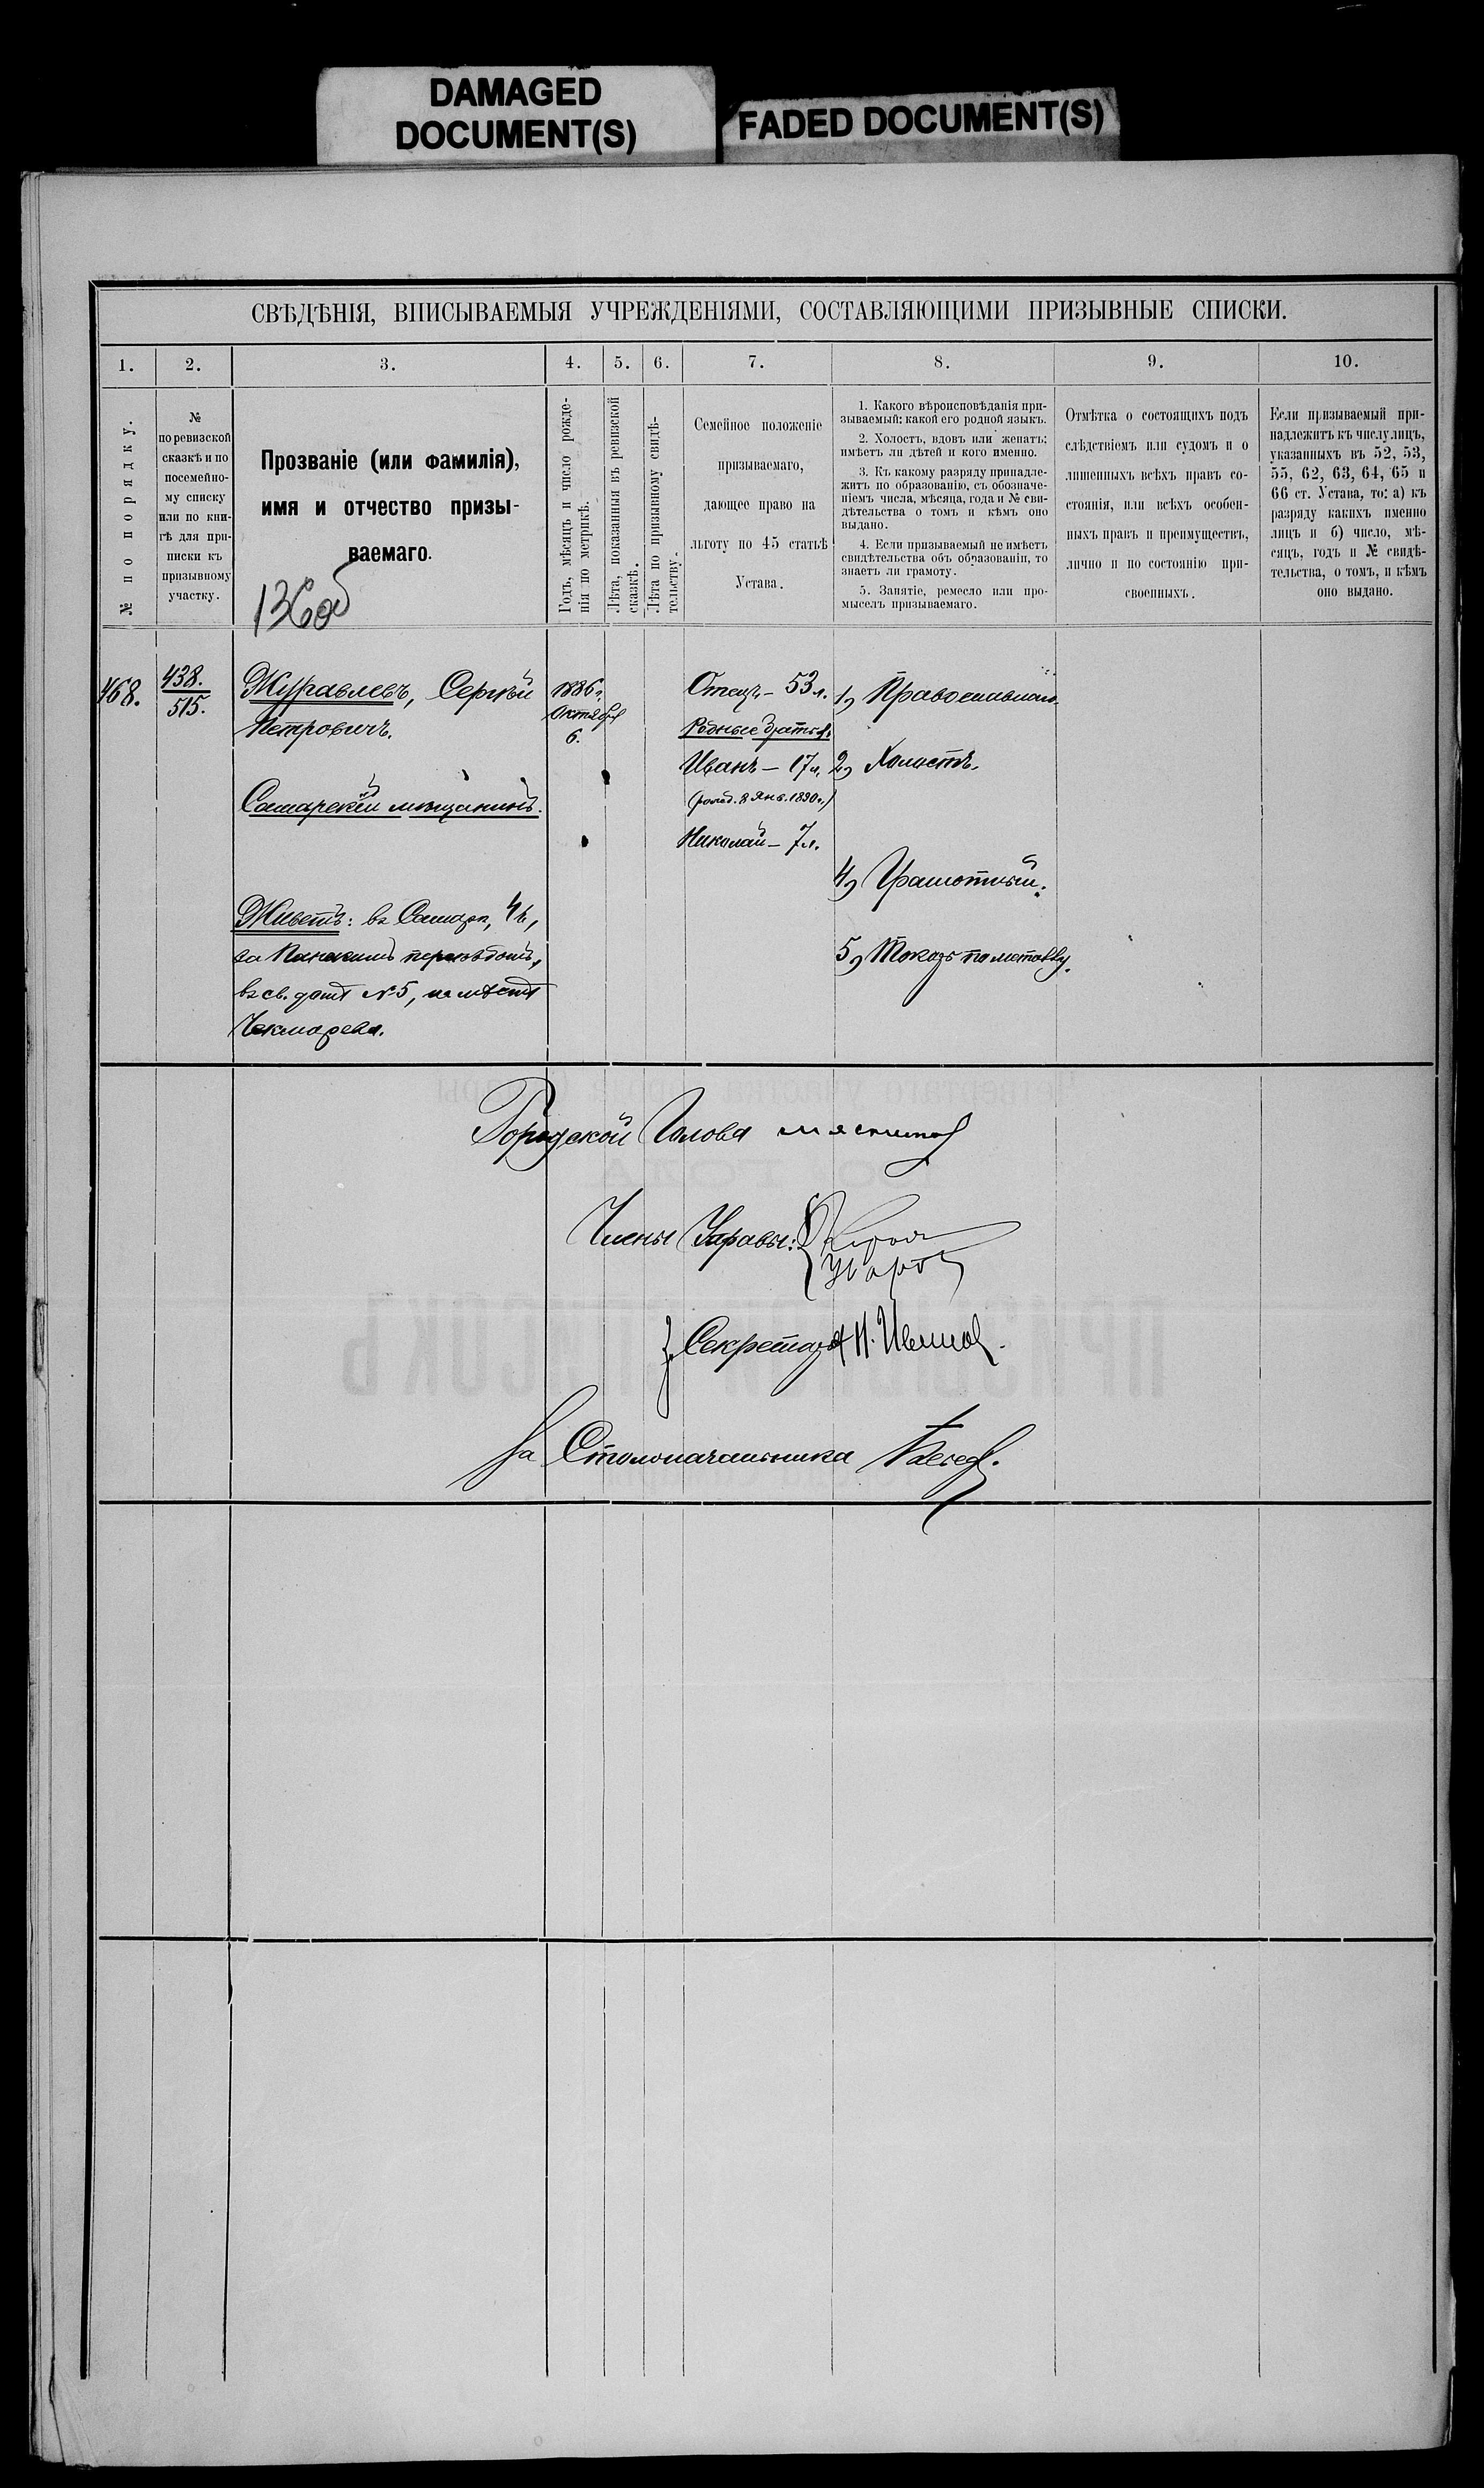 DAMAGED
DOCUMENT(S)
FADED DOCUMENT(S)
СВѢДѢНІЯ, ВПИСЫВАЕМЫЯ УЧРЕЖДЕНІЯМИ, СОСТАВЛЯЮЩИМИ ПРИЗЫВНЫЕ СПИСКИ.
1.
2.
3.
4.
5.
6.
7.
8.
9.
10.
№ по порядку.
№
по ревизской
сказкѣ и по
посемейно-
му списку
или по кни-
гѣ для при-
писки къ
призывному
участку.
Прозваніе (или фамилія),
имя и отчество призы-
ваемаго.
136об
Годъ, мѣсяцъ и число рожде-
нія по метрикѣ.
Лѣта, показанныя въ ревизской
сказкѣ.
Лѣта по призывному свидѣ-
тельству.
Семейное положеніе
призываемаго,
дающее право на
льготу по 45 статьѣ
Устава.
1. Какого вѣроисповѣданія при-
зываемый; какой его родной языкъ.
2. Холостъ, вдовъ или женатъ;
имѣетъ ли дѣтей и кого именно.
3. Къ какому разряду принадле-
житъ по образованію, съ обозначе-
ніемъ числа, мѣсяца, года и № сви-
дѣтельства о томъ и кѣмъ оно
выдано.
4. Если призываемый не имѣетъ
свидѣтельства объ образованіи, то
знаетъ ли грамоту.
5. Занятіе, ремесло или про-
мыселъ призываемаго.
Отмѣтка о состоящихъ подъ
слѣдствіемъ или судомъ и о
лишенныхъ всѣхъ правъ со-
стоянія, или всѣхъ особен-
ныхъ правъ и преимуществъ,
лично и по состоянію при-
своенныхъ.
Если призываемый при-
надлежитъ къ числу лицъ,
указанныхъ въ 52, 53,
55, 62, 63, 64, 65 и
66 ст. Устава, то: а) къ
разряду какихъ именно
лицъ и б) число, мѣ-
сяцъ, годъ и № свидѣ-
тельства, о томъ, и кѣмъ
оно выдано.
468.
438.
515.
Журавлевъ, Сергѣй
Петровичъ.
Самарскій мѣщанинъ.
Живетъ: въ Самарѣ, 4 ч.,
за переѣздомъ,
въ св. домѣ №5, на мѣстѣ
Чекмарева.
1886 г.
Октября
6.
Отецъ – 53 л.
Родные братья:
Иванъ – 17 л.
(рожд. 8 Янв. 1890 г.)
Николай – 7 л.
1) Православнаго.
2) Холостъ.
4) Грамотный.
5) Токарь по металлу.
Городской Голова
Члены Управы:
Секретарь
За Столоначальника